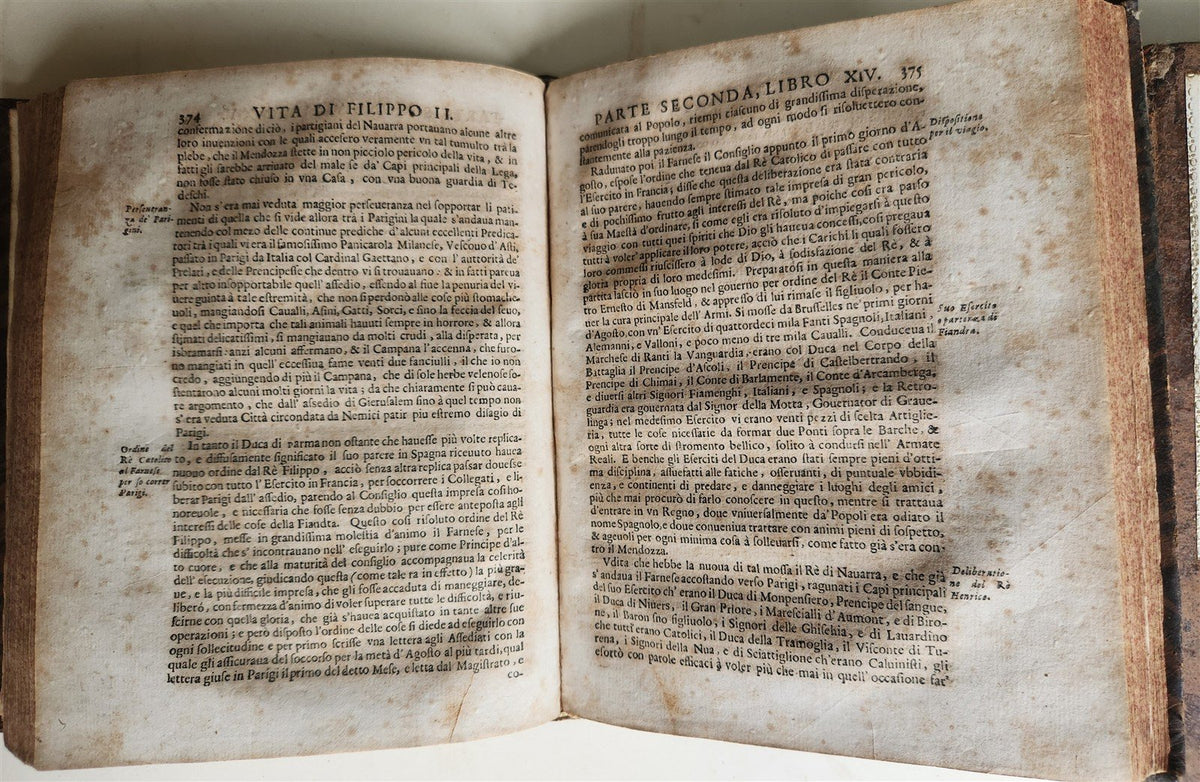 374 VITA DI FILIPPO II.
confermazione di ciò, i partigiani del Nauarra portauano alcune altre
loro inuenzioni con le quali accesero veramente vn tal tumulto trà la
plebe, che il Mendozza stette in non picciolo pericolo della vita, & in
fatti gli sarebbe arriuato del male se da' Capi principali della Lega,
non fosse stato chiuso in vna Casa, con vna buona guardia di Te-
deschi.
Perseueran-
za de' Pari-
gini.
Non s'era mai veduta maggior perseueranza nel sopportar li pati-
menti di quella che si vide allora trà i Parigini la quale s'andaua man-
tenendo col mezo delle continue prediche d'alcuni eccellenti Predica-
tori trà i quali vi era il famosissimo Panicarola Milanese, Vescouo d'Asti,
passato in Parigi da Italia col Cardinal Gaettano, e con l'auttorità de'
Prelati, e delle Prencipesse che dentro vi si trouauano: & in fatti pareua
per altro insopportabile quell'assedio, essendo al fine la penuria del vi-
uere guinta à tale estremità, che non si perdonò alle cose più stomache-
uoli, mangiandosi Caualli, Asini, Gatti, Sorci, e sino la feccia del seuo,
e quel che importa che tali animali hauuti sempre in horrore, & allora
stimati delicatissimi, si mangiauano da molti crudi, alla disperata, per
isbramarsi: anzi alcuni affermano, & il Campana l'accenna, che furo-
no mangiati in quell'eccessiua fame venti due fanciulli, il che io non
credo, aggiungendo di più il Campana, che di sole herbe velenose so-
stentarono alcuni molti giorni la vita; da che chiaramente si può caua-
re argomento, che dall'assedio di Gierusalem sino à quel tempo non
s'era veduta Città circondata da Nemici patir piu estremo disagio di
Parigi.
Ordine del
Rè Catolico
al Farnese
per so correr
Parigi.
In tanto il Duca di Parma non ostante che hauesse più volte replica-
to, e diffusamente significato il suo parere in Spagna riceuuto hauea
nuouo ordine dal Rè Filippo, acciò senza altra replica passar douesse
subito con tutto l'Esercito in Francia, per soccorrere i Collegati, e li-
berar Parigi dall'assedio, parendo al Consiglio questa impresa così ho-
noreuole, e necessaria che fosse senza dubbio per essere anteposta agli
interessi delle cose della Fiandta. Questo così risoluto ordine del Rè
Filippo, messe in grandissima molestia d'animo il Farnese, per le
difficoltà che s'incontrauano nell'eseguirlo; pure come Principe d'al-
to cuore, e che alla maturità del consiglio accompagnaua la celerità
dell'esecuzione, giudicando questa (come tale ra in effetto) la più gra-
ue, e la più difficile impresa, che gli fosse accaduta di maneggiare, de-
liberò, con fermezza d'animo di voler superare tutte le difficoltà, e riu-
scirne con quella gloria, che già s'hauea acquistato in tante altre sue
operazioni; e però disposto l'ordine delle cose si diede ad eseguirlo con
ogni sollecitudine e per primo scrisse vna lettera agli Assediati con la
quale gli assicuraua del soccorso per la metà d'Agosto al più tardi, qual
lettera giuse in Parigi il primo del detto Mese, e letta dal Magistrato, e
co-
PARTE SECONDA, LIBRO XIV. 375
comunicata al Popolo, riempi ciascuno di grandissima disperazione,
parendogli troppo lungo il tempo, ad ogni modo si risoluettero con-
stantemente alla pazienza.
Dispositione
per il viagio.
Radunato poi il Farnese il Consiglio appunto il primo giorno d'A-
gosto, espose l'ordine che teneua dal Rè Catolico di passare con tutto
l'Esercito in Francia; disse che questa deliberazione era stata contraria
al suo parere, hauendo sempre stimato tale impresa di gran pericolo,
e di pochissimo frutto agli interessi del Rè, ma poiche così era parso
à sua Maestà d'ordinare, sì come egli era risoluto d'impiegarsi à questo
viaggio con tutti quei spiriti che Dio gli haueua concessi, così pregaua
tutti à voler' applicare il loro potere, acciò che i Carichi li quali fossero
loro commessi riuscissero à lode di Dio, à sodisfazione del Rè, & à
gloria propria di loro medesimi. Preparatosi in questa maniera alla
partita lasciò in suo luogo nel gouerno per ordine del Rè il Conte Pie-
tro Ernesto di Mansfeld, & appresso di lui rimase il figliuolo, per ha-
uer la cura principale dell'Armi. Si mosse da Brusselles ne' primi giorni
Suo Esercito
e partenza di
Fiandra.
d'Agosto con vn' Esercito di quattordeci mila Fanti Spagnoli, Italiani,
Alemanni, e Valloni, e poco meno di tre mila Caualli. Conduceua il
Marchese di Ranti la Vanguardia, erano col Duca nel Corpo della
Battaglia il Prencipe d'Ascoli, il Prencipe di Castelbertrando, il
Prencipe di Chimai, il Conte di Barlamente, il Conte d'Arcamberga,
e diuersi altri Signori Fiamenghi, Italiani, e Spagnoli; e la Retro-
guardia era gouernata dal Signor della Motta, Gouernator di Graue-
linga; nel medesimo Esercito vi erano venti pezzi di scelta Artiglie-
ria, tutte le cose nicessarie da formar due Ponti sopra le Barche, &
ogni altra sorte di stromento bellico, solito à condursi nell' Armate
Reali. E benche gli Eserciti del Duca erano stati sempre pieni d'otti-
ma disciplina, assuefatti alle fatiche, osseruanti, di puntuale vbbidi-
enza, e continenti di predare, e danneggiare i luoghi degli amici,
più che mai procurò di farlo conoscere in questo, mentre si trattaua
d'entrare in vn Regno, doue vniuersalmente da' Popoli era odiato il
nome Spagnolo, e doue conueniua trattare con animi pieni di sospetto,
& ageuoli per ogni minima cosa à solleuarsi, come fatto già s'era con-
tro il Mendozza.
Deliberatio-
ne del Rè
Henrico.
Vdita che hebbe la nuoua di tal mossa il Rè di Nauarra, e che già
s'andaua il Farnese accostando verso Parigi, ragunati i Capi principali
del suo Esercito ch'erano il Duca di Monpensiero, Prencipe del sangue,
il Duca di Niuers, il Gran Priore, i Marescialli d'Aumont, e di Biro-
ne, il Baron suo figliuolo, i Signori delle Ghischia, e di Lauardino
che tutti erano Catolici, il Duca della Tramoglia, il Visconte di Tu-
rena, i Signori della Nua, e di Sciattiglione ch'erano Caluinisti, gli
esortò con parole efficaci à voler più che mai in quell'occasione far'